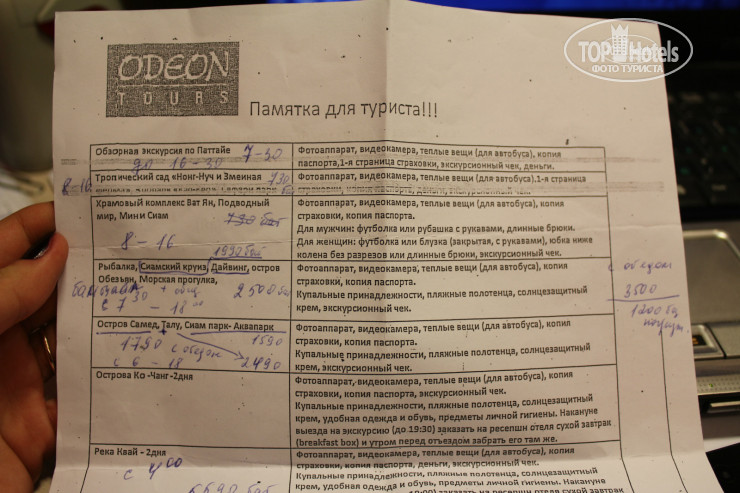 TOP Hotels
ФОТО ТУРИСТА
ODEON
TOURS
Памятка для туриста!!!
Обзорная экскурсия по Паттайе 7-30
до 16-30
Фотоаппарат, видеокамера, теплые вещи (для автобуса), копия
паспорта,1-я страница страховки, экскурсионный чек, деньги.
Тропический сад «Нонг-Нуч и Змеиная
8-16
Фотоаппарат, видеокамера, теплые вещи (для автобуса).1-я страница
страховки, копия паспорта, деньги, экскурсионный чек.
Храмовый комплекс Ват Ян, Подводный
мир, Мини Сиам 790 бат
8-16
1990 бат
Фотоаппарат, видеокамера, теплые вещи (для автобуса), копия
страховки, копия паспорта.
Для мужчин: футболка или рубашка с рукавами, длинные брюки.
Для женщин: футболка или блузка (закрытая, с рукавами), юбка ниже
колена без разрезов или длинные брюки, экскурсионный чек.
Рыбалка, Сиамский круиз, Дайвинг, остров
Обезьян, Морская прогулка,
2500
с 7 30 - 18 00
Фотоаппарат, видеокамера, теплые вещи (для автобуса), копия
страховки, копия паспорта.
Купальные принадлежности, пляжные полотенца, солнцезащитный
крем, экскурсионный чек.
с обедом
3500
1200
Остров Самед, Талу, Сиам парк- Аквапарк
1590
1790 с обедом
с 6 - 18 2490
Фотоаппарат, видеокамера, теплые вещи (для автобуса), копия
страховки, копия паспорта.
Купальные принадлежности, пляжные полотенца, солнцезащитный
крем, экскурсионный чек.
Острова Ко -Чанг-2дня
Фотоаппарат, видеокамера, теплые вещи (для автобуса), копия
страховки, копия паспорта, экскурсионный чек.
Купальные принадлежности, пляжные полотенца, солнцезащитный
крем, удобная одежда и обувь, предметы личной гигиены. Накануне
выезда на экскурсию (до 19:30) заказать на ресепшн отеля сухой завтрак
(breakfast box) и утром перед отъездом забрать его там же.
Река Квай - 2дня
с 4 00
6690 бат
Фотоаппарат, видеокамера, теплые вещи (для автобуса), копия
страховки, копия паспорта, деньги, экскурсионный чек.
Купальные принадлежности, пляжные полотенца, солнцезащитный
крем, удобная одежда и обувь, предметы личной гигиены. Накануне
заказать на ресепшн отеля сухой завтрак